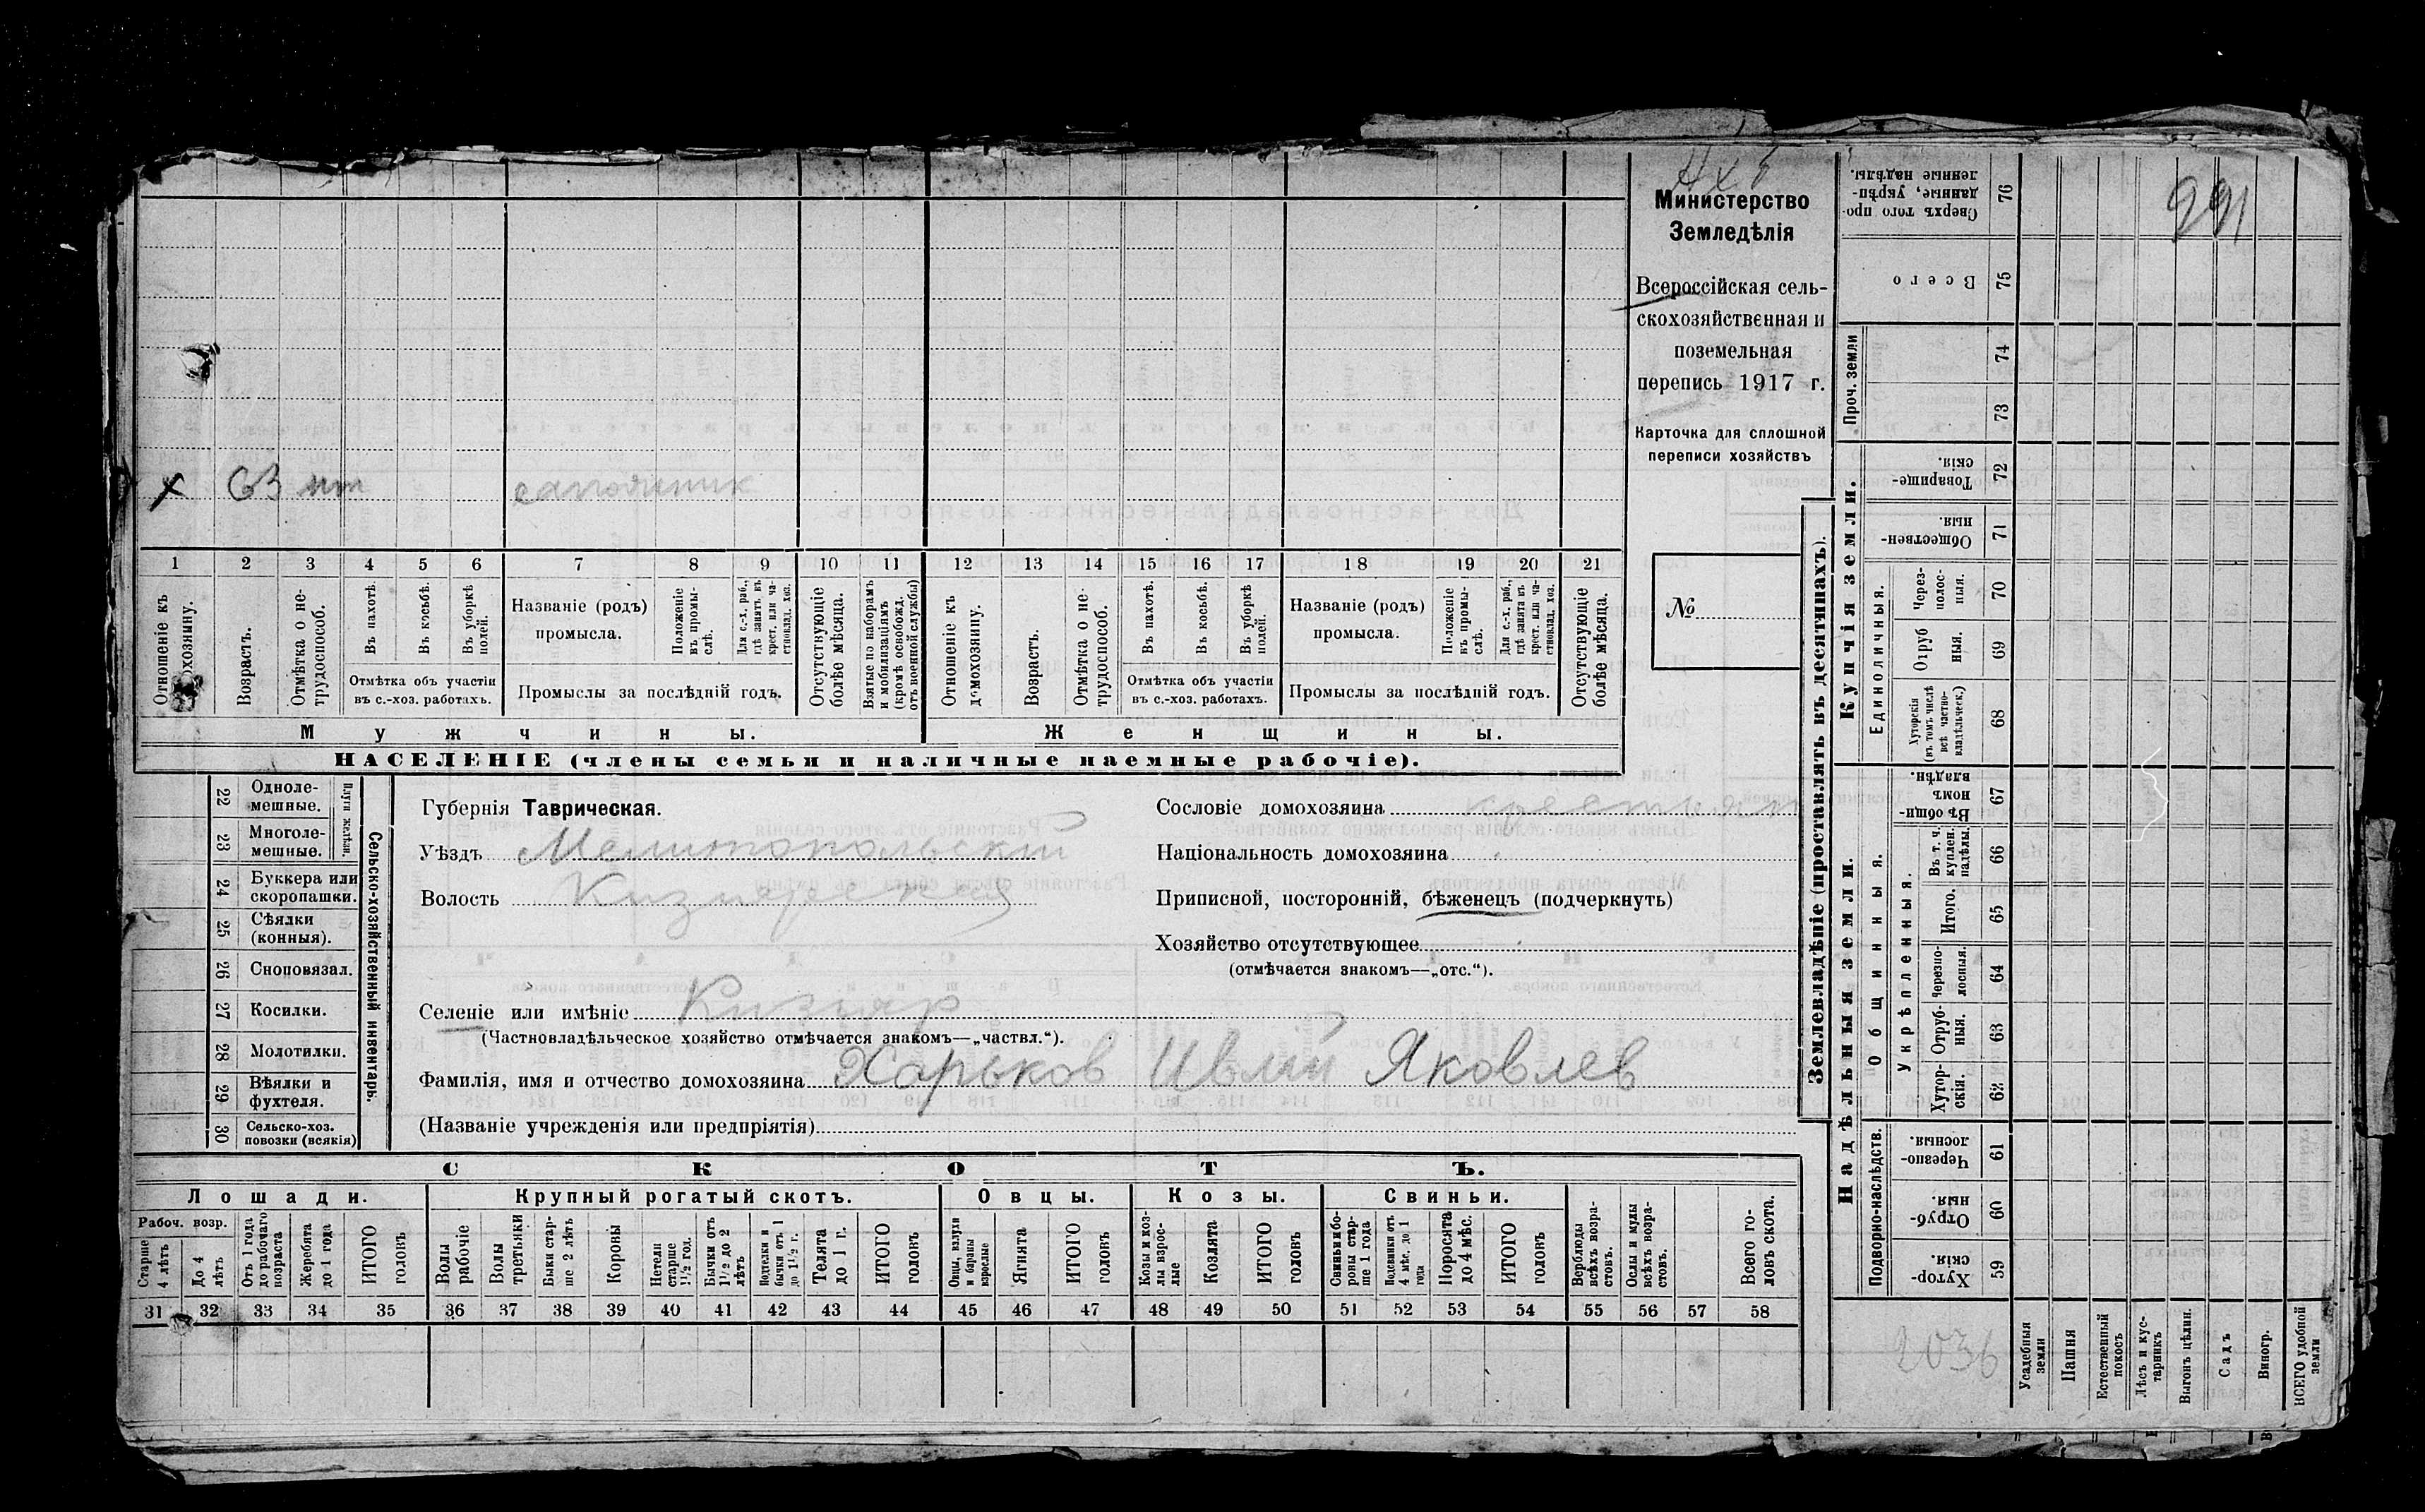 991
Министерство
Земледѣлія
Всероссійская сель-
скохозяйственная и
поземельная
перепись 1917 г.
Карточка для сплошной
переписи хозяйствъ
№
х 63 сапожник
1 2 3 4 5 6 7 8 9 10 11 12 13 14 15 16 17 18 19 20 21
Отношеніе къ
домохозяину.
Возрастъ.
Отмѣтка о не-
трудоспособ.
Въ пахотѣ.
Въ косьбѣ.
Въ уборкѣ
полей.
Отмѣтка объ участіи
въ с.-хоз. работахъ.
Названіе (родъ)
промысла.
Положеніе
въ промы-
слѣ.
Для с.-х. раб.,
гдѣ занятъ, въ
крест. или ча-
стновлад. хоз.
Промыслы за послѣдній годъ.
Отсутствующіе
болѣе мѣсяца.
Взятые по наборамъ
и мобилизаціямъ
(кромѣ освобожд.
отъ военной службы)
Отношеніе къ
домохозяину.
Возрастъ.
Отмѣтка о не-
трудоспособ.
Въ пахотѣ.
Въ косьбѣ.
Въ уборкѣ
полей.
Отмѣтка объ участіи
въ с.-хоз. работахъ.
Названіе (родъ)
промысла.
Положеніе
въ промы-
слѣ.
Для с.-х. раб.,
гдѣ занята въ
крест. или ча-
стновлад. хоз.
Промыслы за послѣдній годъ.
Отсутствующіе
болѣе мѣсяца.
Мужчины.
Женщины.
НАСЕЛЕНІЕ (члены семьи и наличные наемные рабочіе).
22 Однолемешные.
23 Многолемешные.
Плуги желѣзн.
24 Буккера или
скоропашки.
25 Сѣялки
(конныя).
26 Сноповязал.
27 Косилки.
28 Молотилки.
29 Вѣялки и
фухтеля.
30 Сельско-хоз.
повозки (всякія)
Сельско-хозяйственный инвентарь.
Губернія Таврическая.
Уѣздъ Мелитопольскій
Волость Кизиярская
Селеніе или имѣніе Кизияр
(Частновладѣльческое хозяйство отмѣчается знакомъ—„частвл.“).
Фамилія, имя и отчество домохозяина Харьков Ивлий Яковлев
(Названіе учрежденія или предпріятія)
Сословіе домохозяина крестьян
Національность домохозяина
Приписной, посторонній, бѣженецъ (подчеркнуть)
Хозяйство отсутствующее
(отмѣчается знакомъ—„отс.“).
СКОТЪ.
Лошади.
Крупный рогатый скотъ.
Овцы.
Козы.
Свиньи.
Рабоч. возр.
Старше
4 лѣтъ
До 4
лѣтъ
Отъ 1 года
до рабочаго
возраста
Жеребята
до 1 года
ИТОГО
головъ
Волы
рабочіе
Волы
третьяки
Быки стар-
ше 2 лѣтъ
Коровы
Нетели
старше
1½ год.
Бычки отъ
1½ до 2
лѣтъ
Подтелки и
бычки отъ 1
до 1½ г.
Телята
до 1 г.
ИТОГО
головъ
Овцы, валухи
и бараны
взрослые
Ягнята
ИТОГО
головъ
Козы и коз-
лы взрос-
лые
Козлята
ИТОГО
головъ
Свиньи и бо-
ровы стар-
ше 1 года
Подсвинки отъ
4 мѣс. до 1
года
Поросята
до 4 мѣс.
ИТОГО
головъ
Верблюды
всѣхъ возра-
стовъ.
Ослы и мулы
всѣхъ возра-
стовъ.
Всего го-
ловъ скота.
31 32 33 34 35 36 37 38 39 40 41 42 43 44 45 46 47 48 49 50 51 52 53 54 55 56 57 58
Землевладѣніе (проставлять въ десятинахъ).
Проч. земли
Купчія земли.
Надѣльныя земли.
Единоличныя.
Общинныя.
Укрѣпленныя.
Подворно-наслѣдств.
Сверхъ того про-
данные, укрѣп-
ленные надѣлы.
76
Всего
75
74
73
Товарище-
скія.
72
Обществен-
ныя.
71
Через-
полос-
ныя.
70
Отруб
ныя.
69
Хуторскія
(въ томъ числѣ
всѣ частно-
владѣльческ.)
68
Въ общин-
номъ
владѣн.
67
Въ т. ч.
куплен.
надѣлы.
66
Итого.
65
Черезпо-
лосныя.
64
Отруб-
ныя.
63
Хутор-
скія.
62
Черезпо-
лосныя.
61
Отруб-
ныя.
60
Хутор-
скія.
59
2036
Усадебныя
земли
Пашня
Естественный
покосъ
Лѣсъ и кус-
тарникъ
Выгонъ цѣлин.
Садъ
Виногр.
ВСЕГО удобной
земли